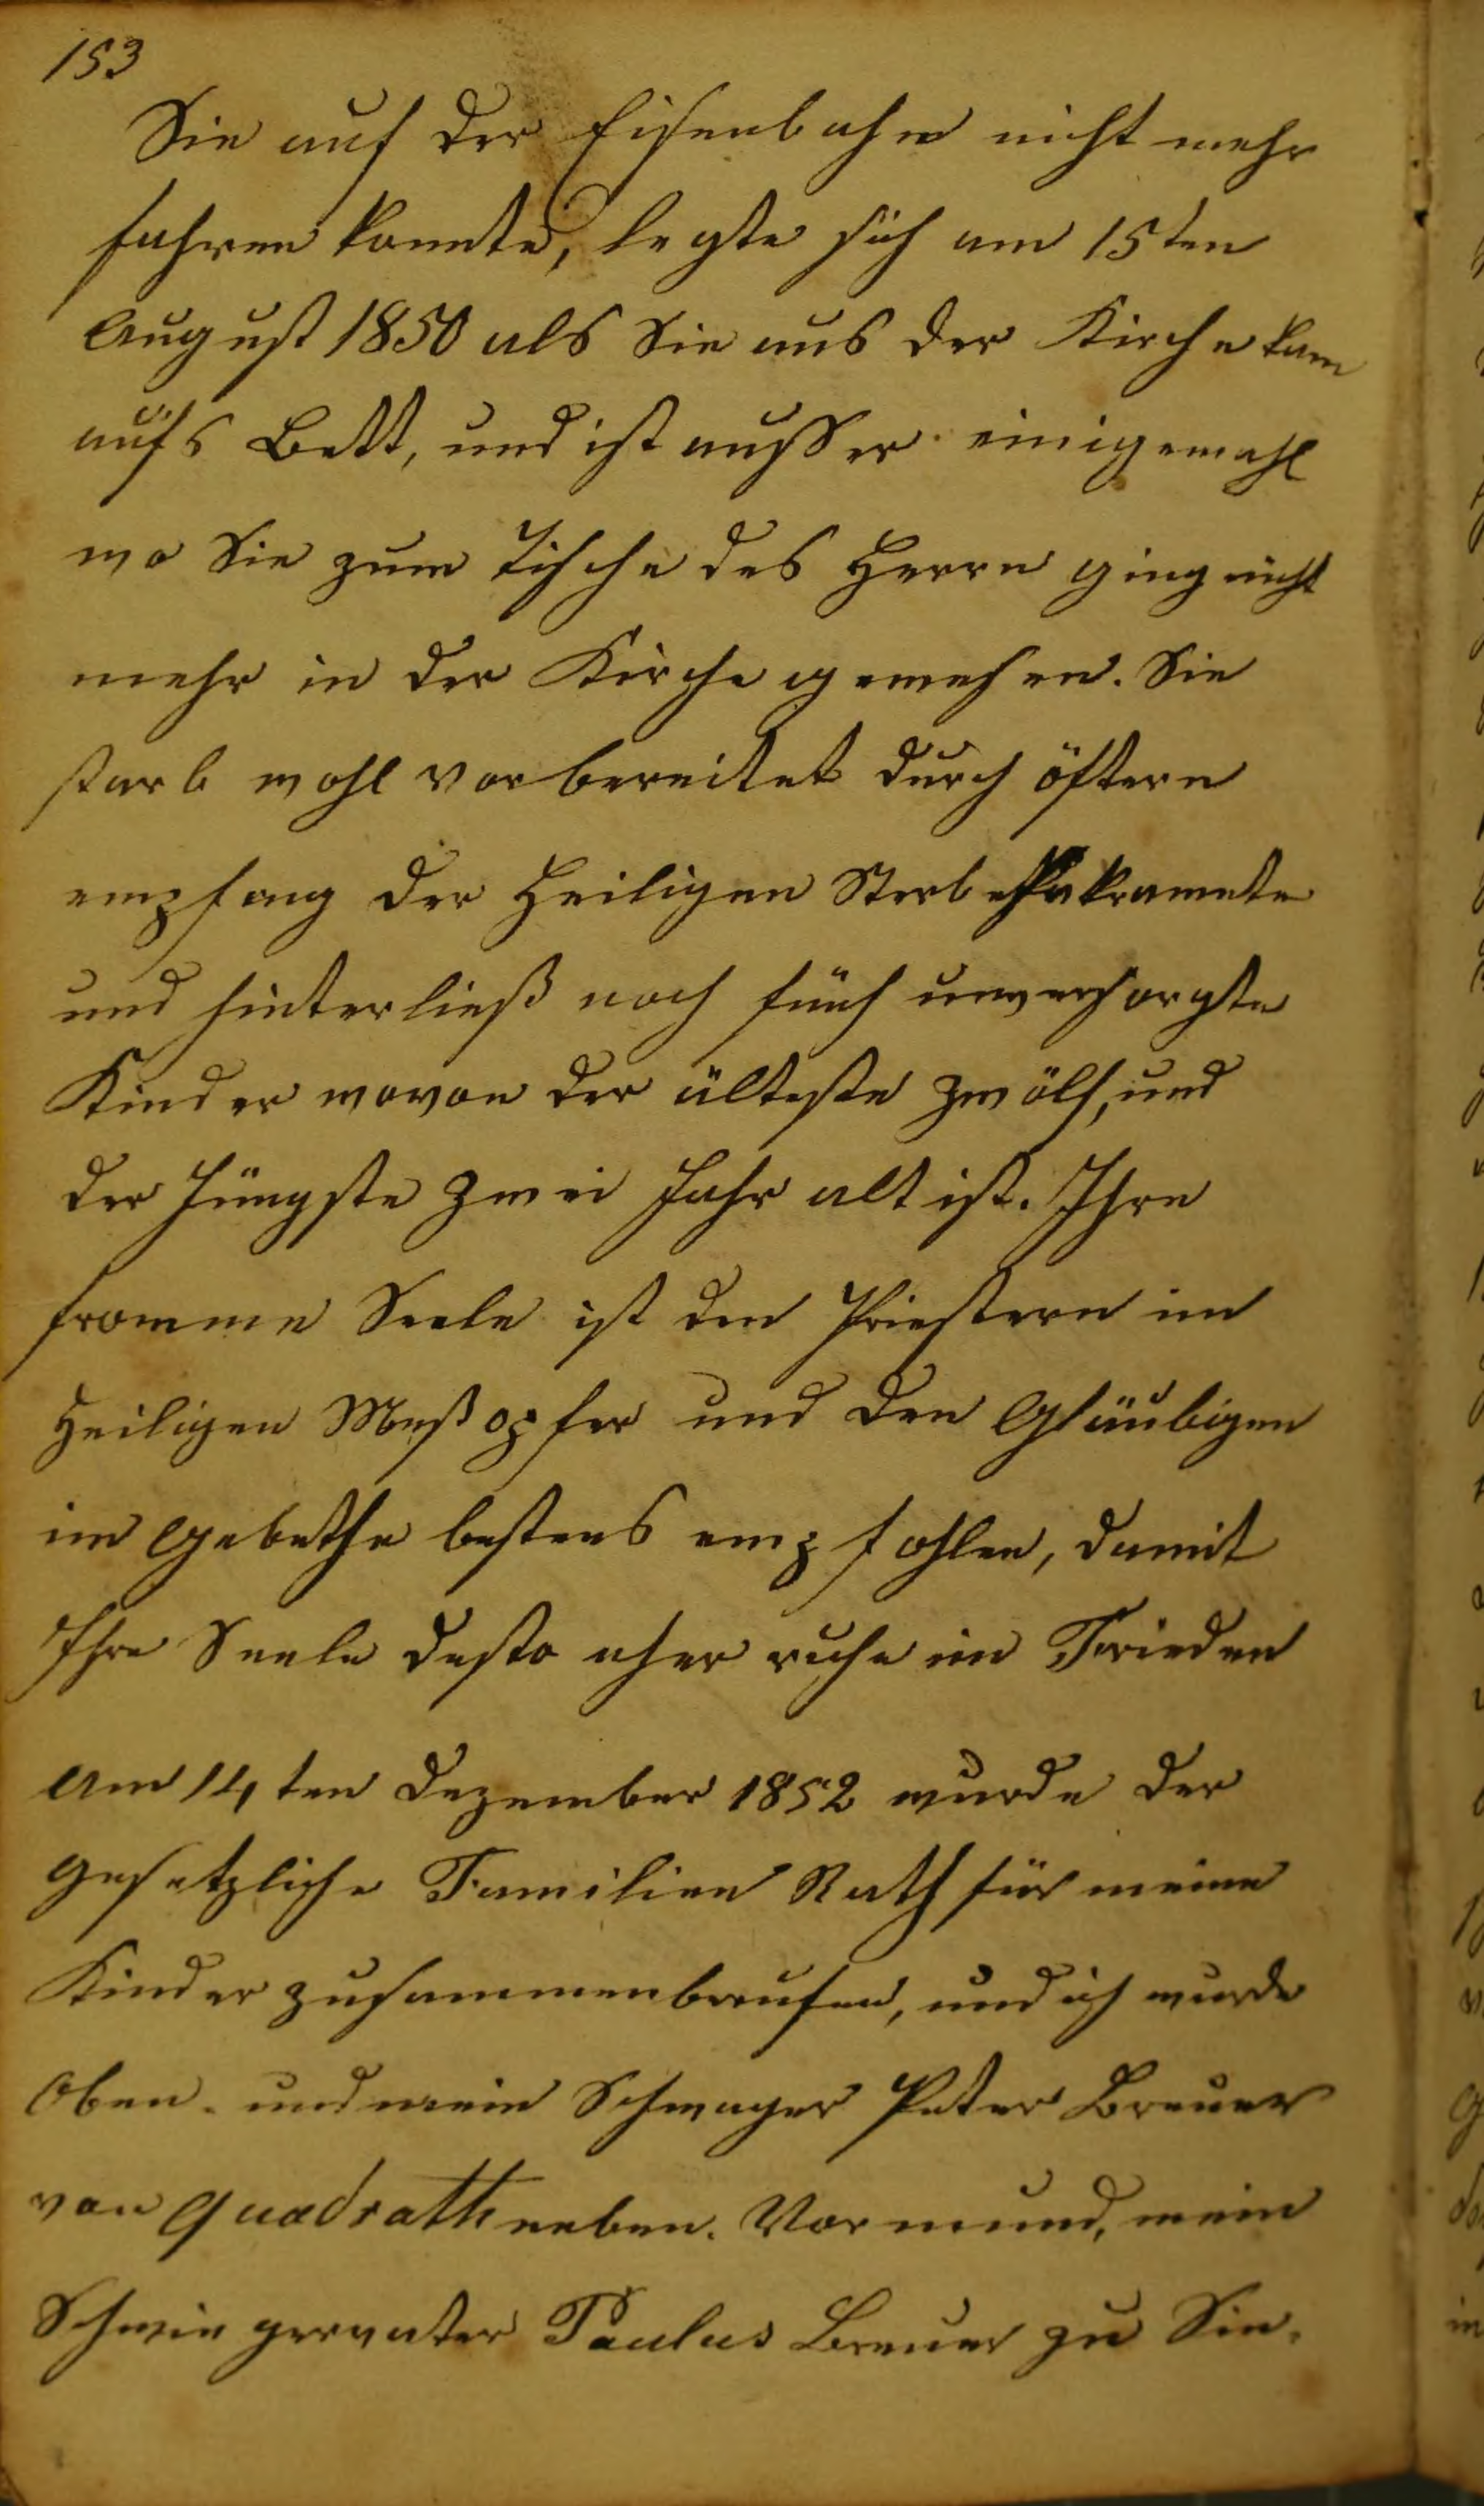 153
Sie auf der Eisenbahn nicht mehr
fahren konnte, legte sich am 15ten
August 1850 als Sie aus der Kirche kam
aufs Bett, und ist ausser einigemahl
wo Sie zum Tische des Herrn ging nicht
mehr in der Kirche gewesen. Sie
starb wohl vorbereitet durch öftern
empfang der Heiligen Sterbesakramete
und hinterließ noch fünf unversorgte
Kinder wovon der älteste zwölf, und
der Jüngste zwei Jahr alt ist. Ihre
fromme Seele ist den Priestern im
Heiligen Meßopfer und den Gläubigen
im Gebethe bestens empfohlen, damit
Ihre Seele desto eher ruhe im Frieden
Am 14ten Dezember 1852 wurde der
gesetzliche Familien Rath für meine
Kinder zusammenberufen, und ich wurde
Oben- und mein Schwager Peter Breuer
von Quadrath neben. Vormund, mein
Schwiegervater Paulus Breuer zu Sin-